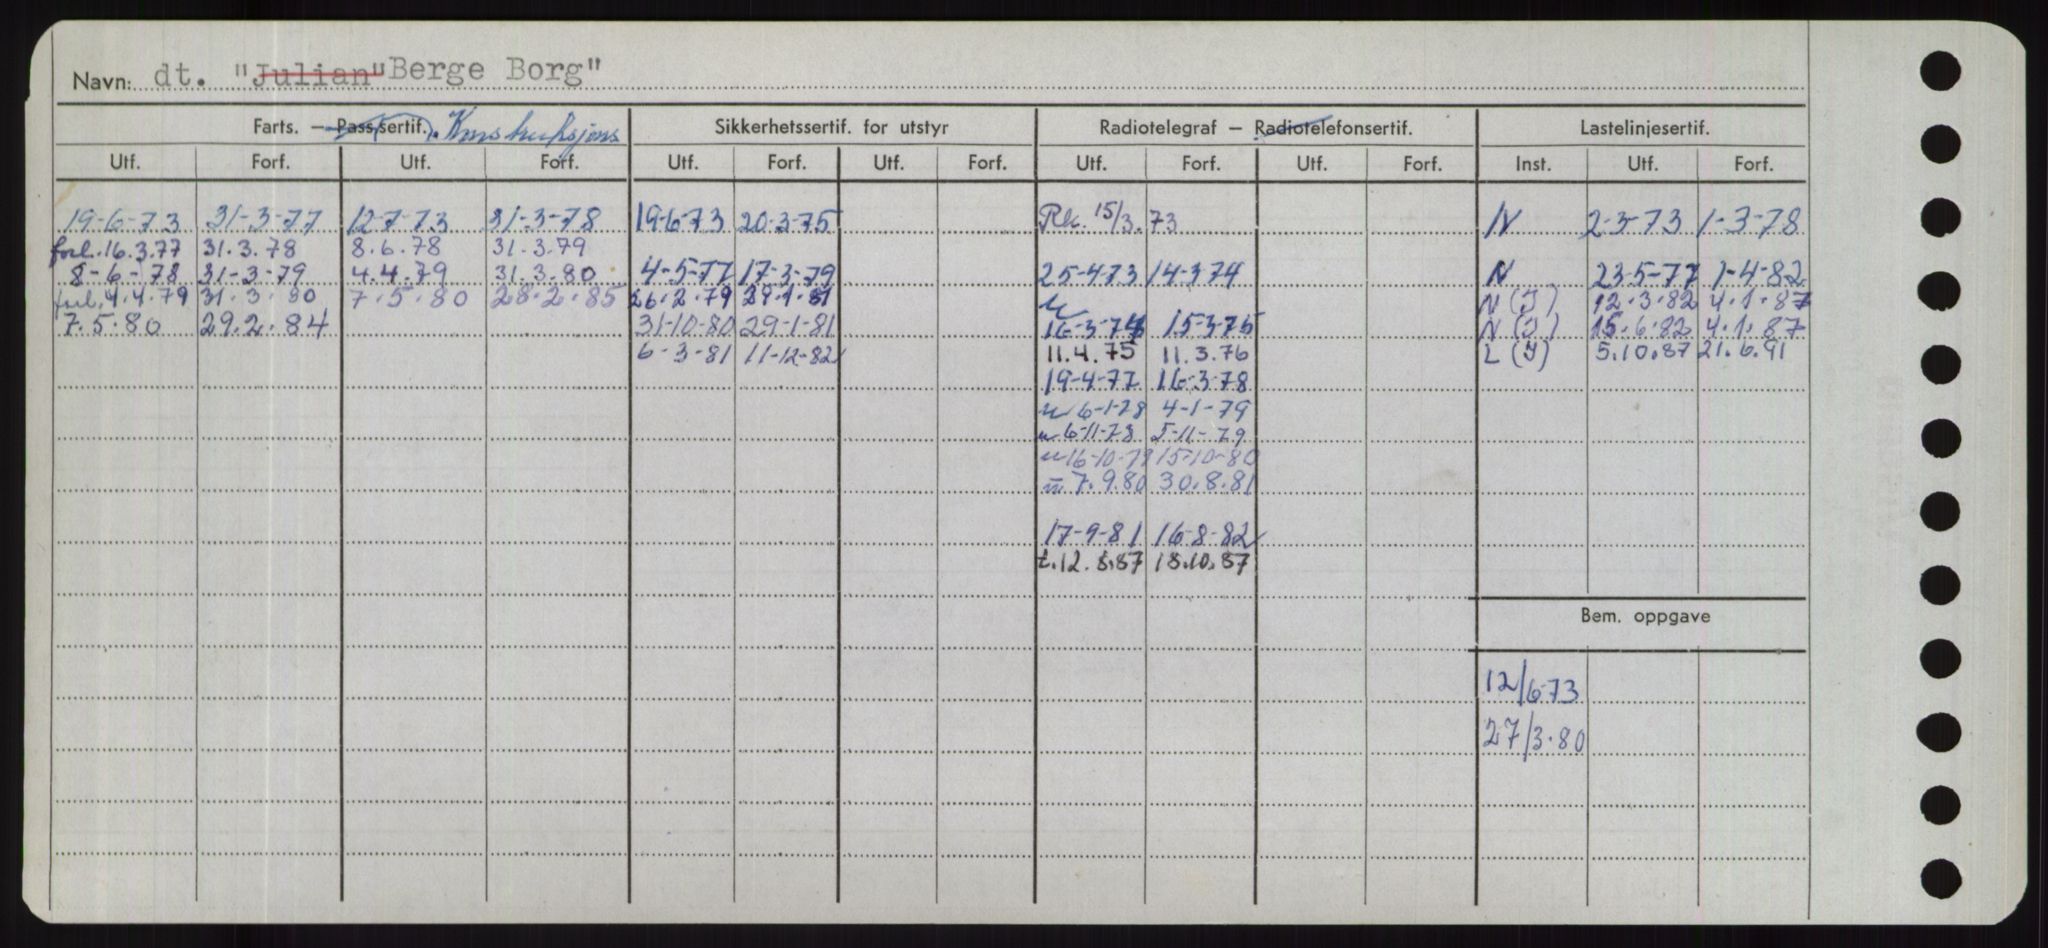 Navn: dt. "Julian" Berge Borg"
Farts. — Pass.sertif. Konstruksjons Sikkerhetssertif. for utstyr Radiotelegraf — Radiotelefonsertif. Lastelinjesertif.
Utf. Forf. Utf. Forf. Utf. Forf. Utf. Forf. Utf. Forf. Utf. Forf. Inst. Utf. Forf.
19-6-73 31-3-77 12-7-73 31-3-78 19-6-73 20-3-75 Rk. 15/3.73 N 2-3-73 1-3-78
forl. 16.3.77 31.3.78 8.6.78 31.3.79
8-6-78 31-3-79 4.4.79 31.3.80 4-5-77 17-3-79 25-4-73 14-3-74 N 23-5-77 1-4-82
forl. 4.4.79 31.3.80 7.5.80 28.2.85 26.2.79 29.1.81 N (I) 12.3.82 4.1.87
7.5.80 29.2.84 31-10-80 29-1-81 16-3-74 15-3-75 N (I) 15.6.82 4.1.87
6-3-81 11-12-82 11.4.75 11.3.76 L (I) 5.10.87 21.6.91
19-4-77 16-3-78
6-1-78 4-1-79
6-11-78 5-11-79
16-10-79 15-10-80
7.9.80 30.8.81
17-9-81 16-8-82
t.12.8.87 18.10.87
Bem. oppgave
12/6-73
27/3.80